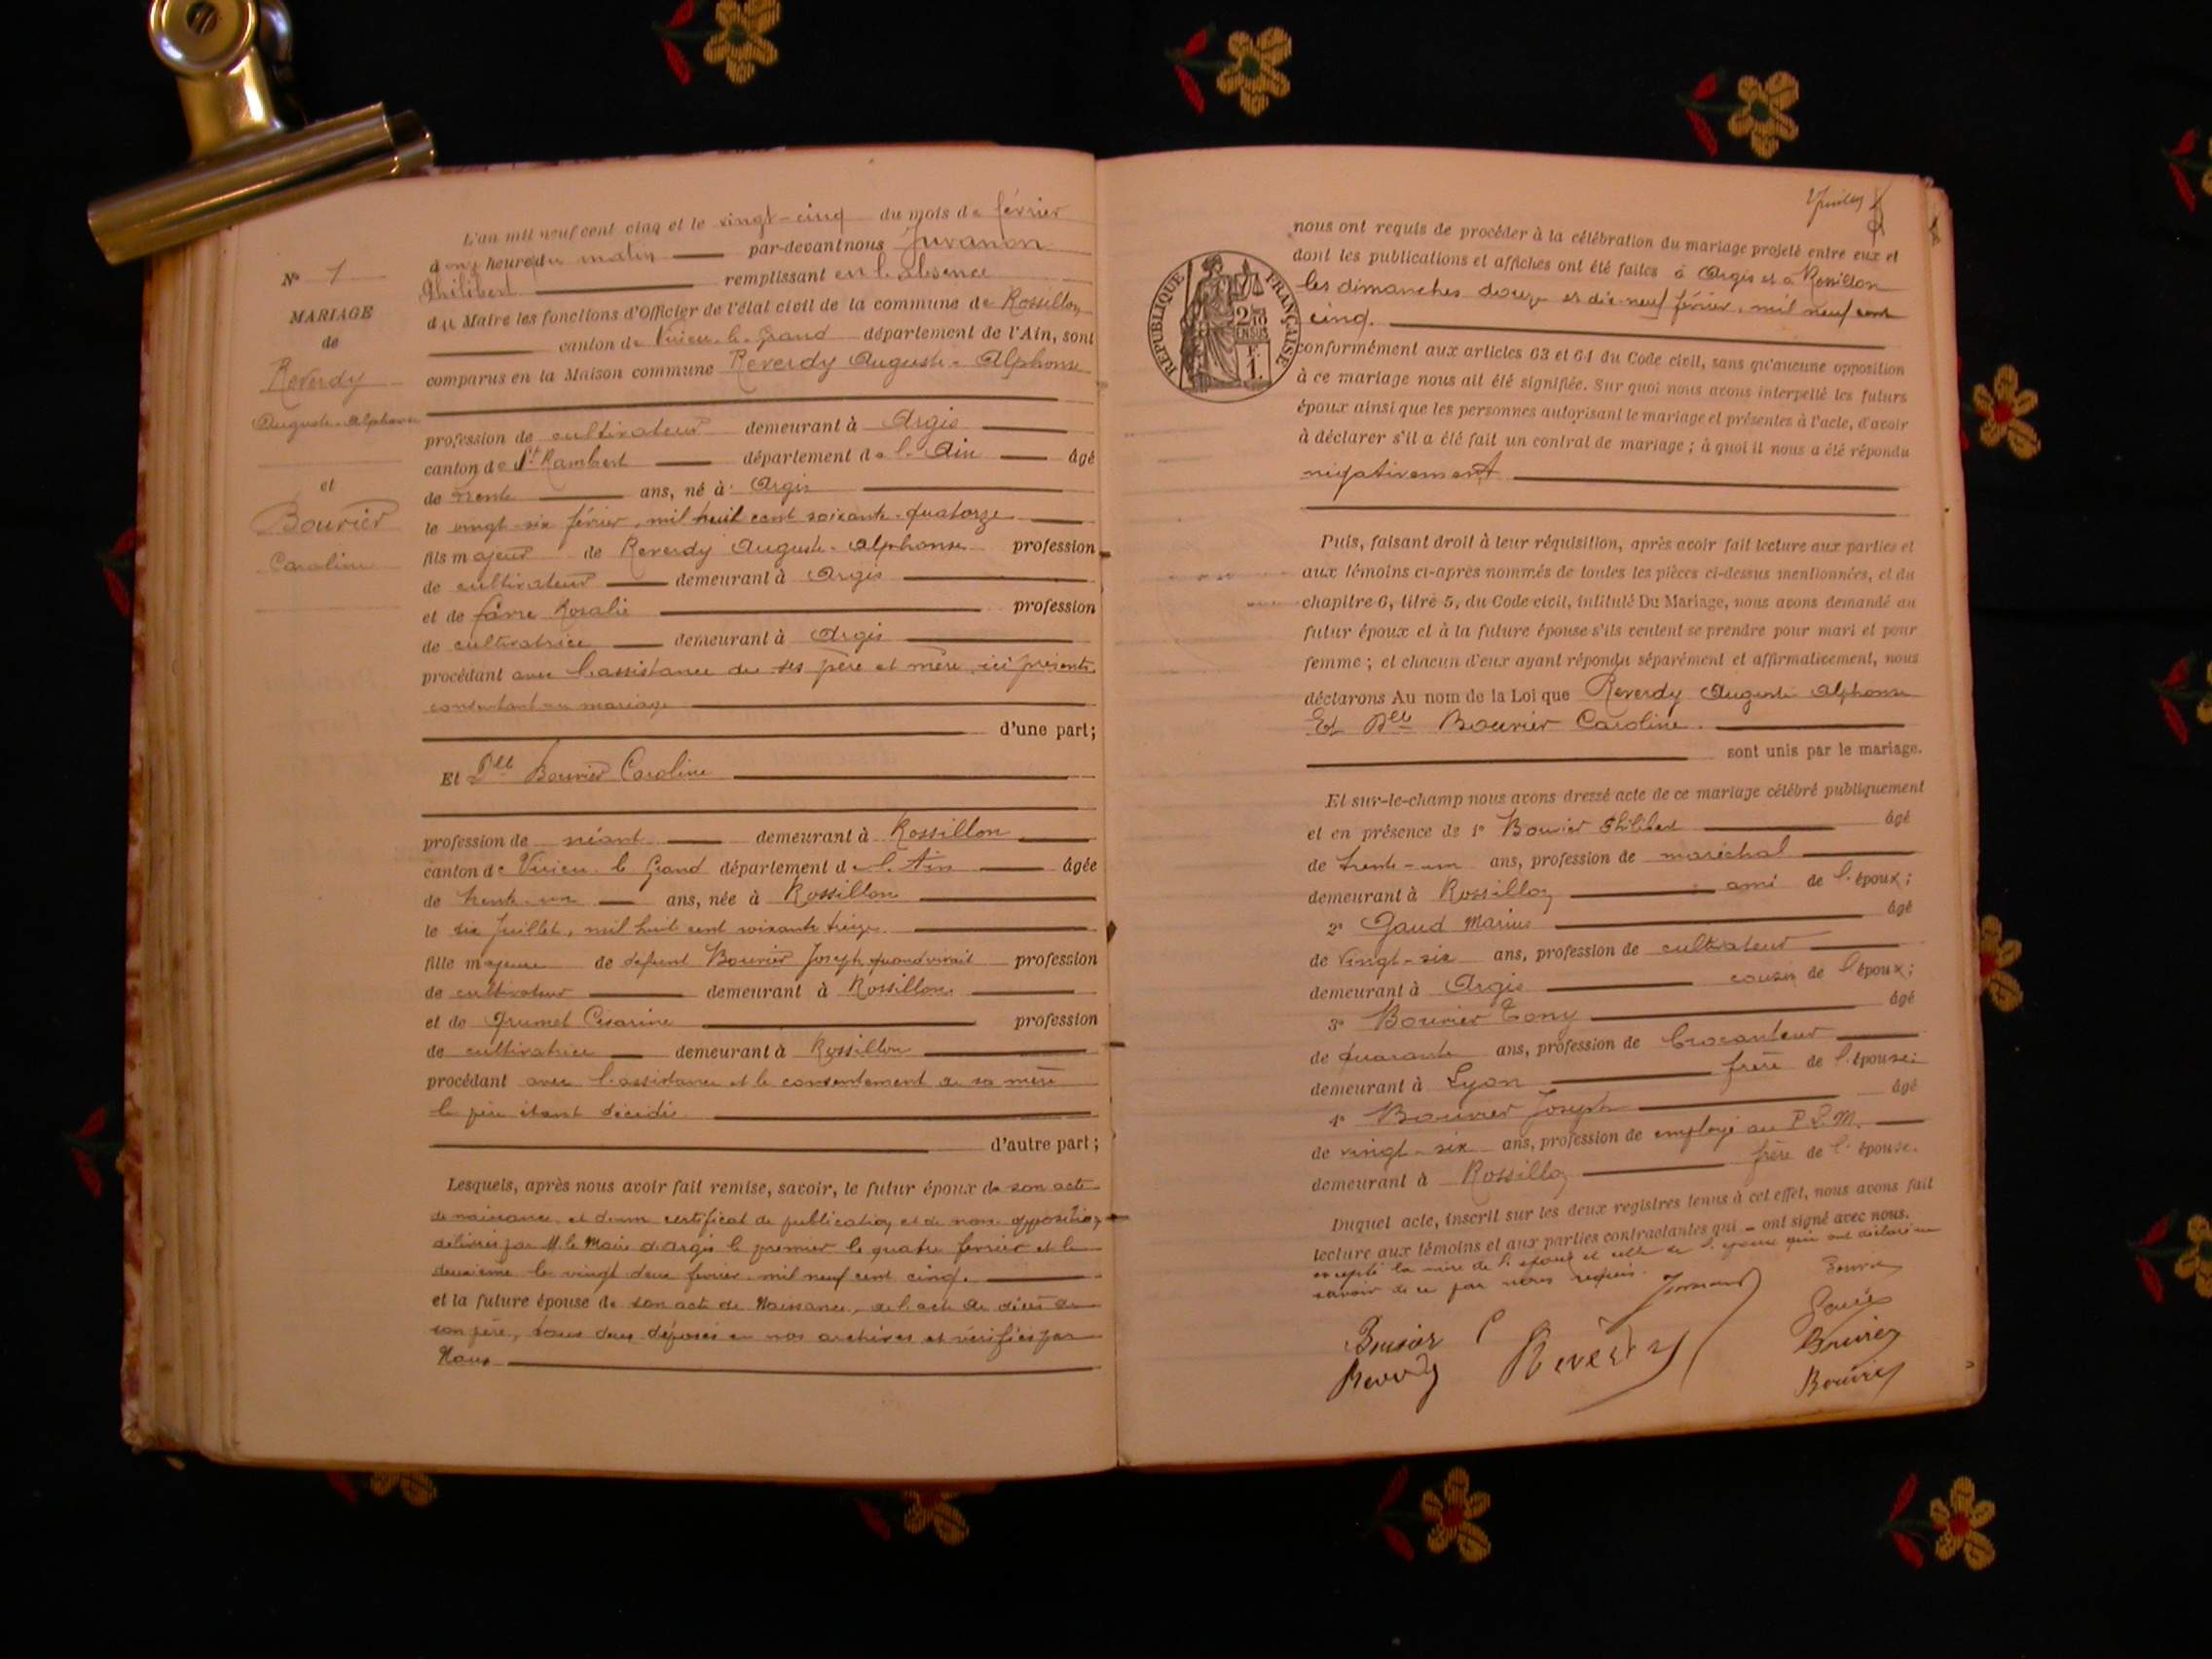 N° 1
MARIAGE
de
Reverdy
Auguste-Alphonse
et
Bouvier
Caroline
L'an mil neuf cent cinq et le vingt-cinq du mois de février
à onze heure du matin par-devant nous Juvanon
Philibert remplissant en l'absence
du Maire les fonctions d'Officier de l'état civil de la commune de Rossillon
canton de Virieu-le-Grand département de l'Ain, sont
comparus en la Maison commune Reverdy Auguste-Alphonse
profession de cultivateur demeurant à Argis
canton de St Rambert département de l'Ain âgé
de trente ans, né à Argis
le vingt-six février, mil huit cent soixante-quatorze
fils majeur de Reverdy Auguste-Alphonse profession
de cultivateur demeurant à Argis
et de Favre Rosalie profession
de cultivatrice demeurant à Argis
procédant avec l'assistance de ses père et mère, ici présents
consentant au mariage
d'une part;
Et Dlle Bouvier Caroline
profession de néant demeurant à Rossillon
canton de Virieu-le-Grand département de l'Ain âgée
de trente-un ans, née à Rossillon
le six Juillet, mil huit cent soixante treize
fille majeure de défunt Bouvier Joseph quand vivait profession
de cultivateur demeurant à Rossillon
et de Grumet Césarine profession
de cultivatrice demeurant à Rossillon
procédant avec l'assistance et le consentement de sa mère
le père étant décédé
d'autre part;
Lesquels, après nous avoir fait remise, savoir, le futur époux de son acte
de naissance et d'un certificat de publication et de non opposition
délivrés par M. le Maire d'Argis le premier le quatre février et le
deuxième le vingt deux février mil neuf cent cinq.
et la future épouse de son acte de Naissance, de l'acte de décès de
son père, tous deux déposés en nos archives et vérifiés par
Nous
nous ont requis de procéder à la célébration du mariage projeté entre eux et
dont les publications et affiches ont été faites à Argis et à Rossillon
les dimanches douze et dix-neuf février, mil neuf cent
cinq.
RÉPUBLIQUE FRANÇAISE
2/10
EN SUS
F.
1.
conformément aux articles 63 et 64 du Code civil, sans qu'aucune opposition
à ce mariage nous ait été signifiée. Sur quoi nous avons interpellé les futurs
époux ainsi que les personnes autorisant le mariage et présentes à l'acte, d'avoir
à déclarer s'il a été fait un contrat de mariage; à quoi il nous a été répondu
négativement
Puis, faisant droit à leur réquisition, après avoir fait lecture aux parties et
aux témoins ci-après nommés de toutes les pièces ci-dessus mentionnées, et du
chapitre 6, titre 5, du Code civil, intitulé Du Mariage, nous avons demandé au
futur époux et à la future épouse s'ils veulent se prendre pour mari et pour
femme; et chacun d'eux ayant répondu séparément et affirmativement, nous
déclarons Au nom de la Loi que Reverdy Auguste Alphonse
Et Dlle Bouvier Caroline.
sont unis par le mariage.
Et sur-le-champ nous avons dressé acte de ce mariage célébré publiquement
et en présence de 1° Bouvier Philibert âgé
de trente-un ans, profession de maréchal
demeurant à Rossillon ami de l'époux;
2° Gaud Marius âgé
de vingt-six ans, profession de cultivateur
demeurant à Argis cousin de l'époux;
3° Bouvier Tony âgé
de quarante ans, profession de brocanteur
demeurant à Lyon frère de l'épouse;
4° Bouvier Joseph âgé
de vingt-six ans, profession de employé au P.L.M.
demeurant à Rossillon frère de l'épouse.
Duquel acte, inscrit sur les deux registres tenus à cet effet, nous avons fait
lecture aux témoins et aux parties contractantes qui ont signé avec nous.
excepté la mère de l'époux et celle de l'épouse qui ont déclaré ne
savoir de ce par nous requis.
Bouvier C
Reverdy
Reverdy
Bouvier
Bouvier